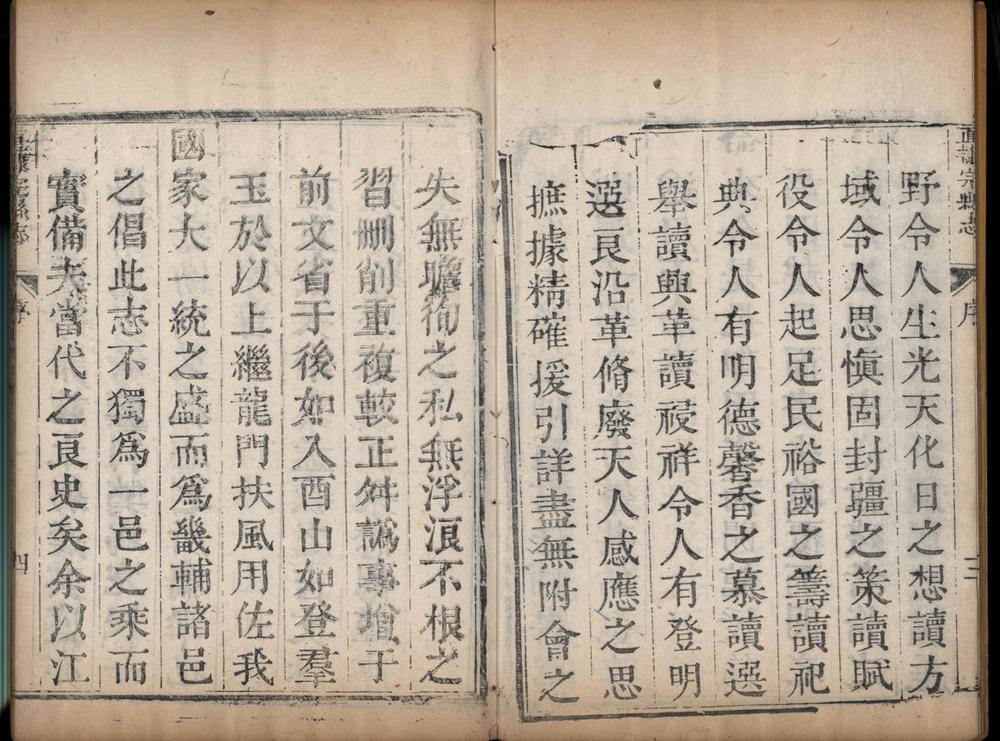 野令人生光天化日之想讀方
域令人思愼固封疆之策讀賦
役令人起足民裕國之籌讀祀
典令人有明德馨香之慕讀選
舉讀興革讀祲祥令人有登明
選良沿革脩廢天人感應之思
摭據精確援引詳盡無附會之
失無瞻徇之私無浮浪不根之
習刪削重複較正舛譌事增于
前文省于後如入酉山如登羣
玉於以上繼龍門扶風用佐我
國家大一統之盛而爲畿輔諸邑
之倡此志不獨爲一邑之乘而
實備夫當代之良史矣余以江
序
四